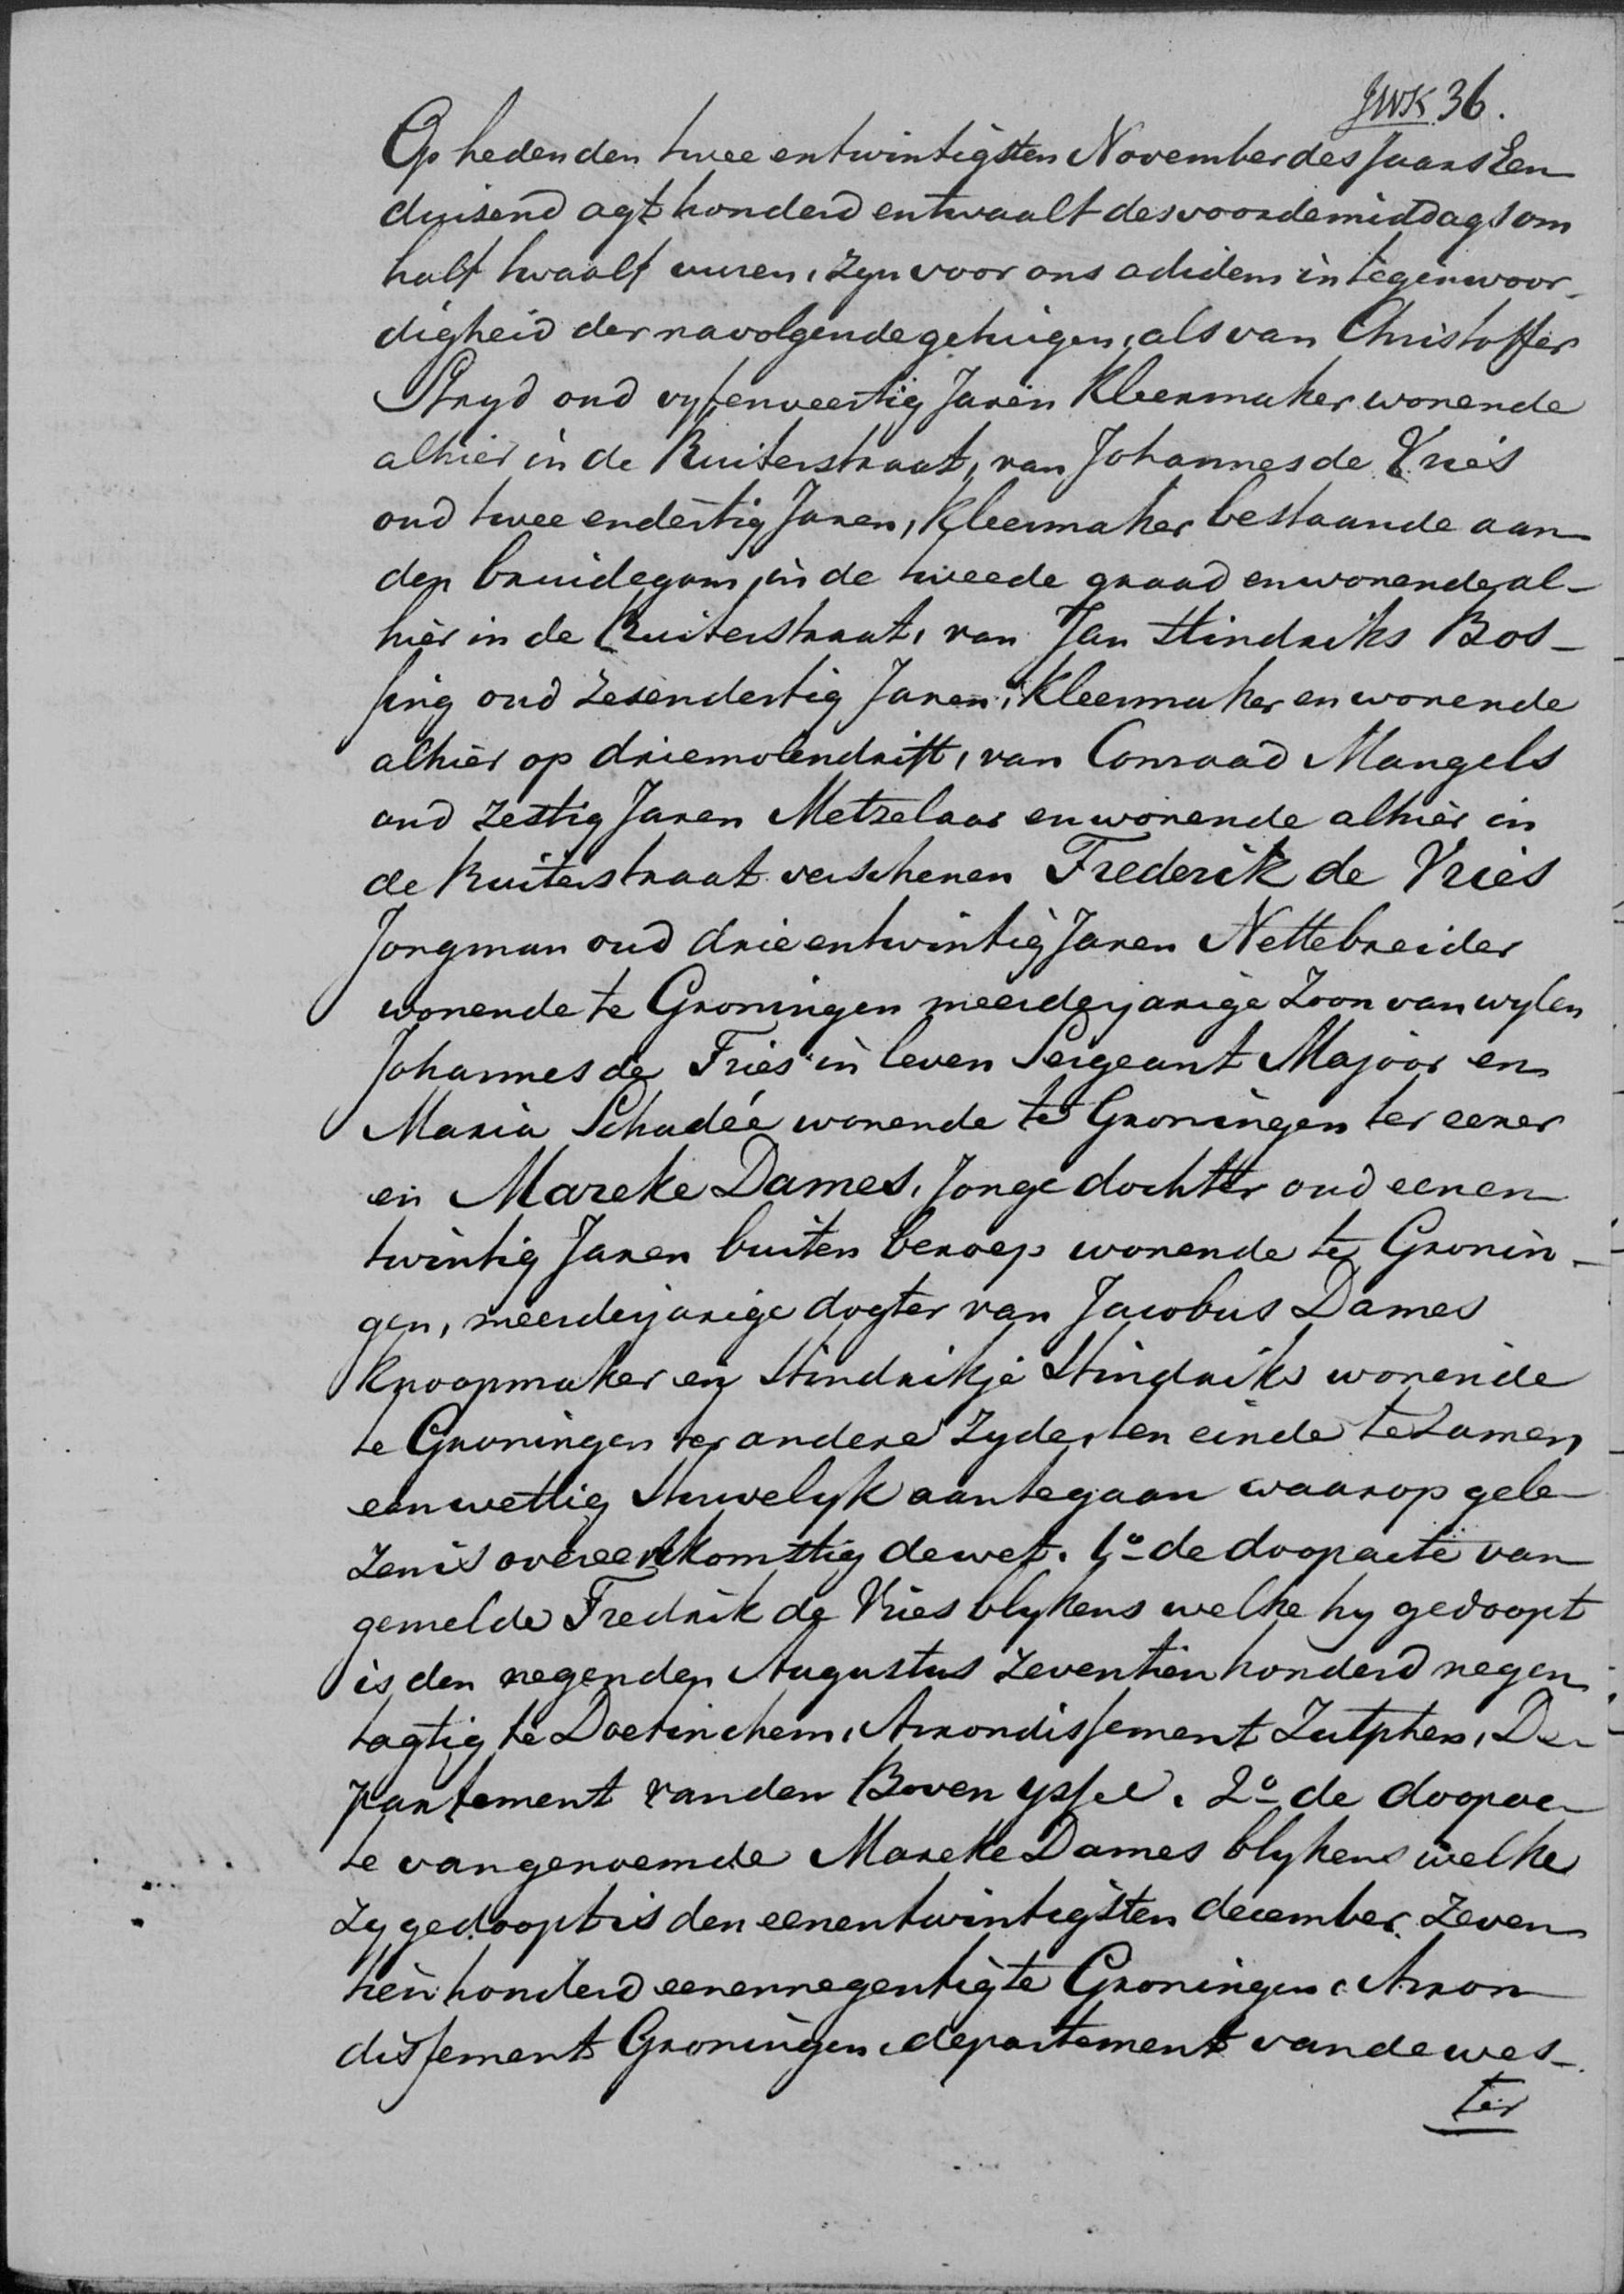 JWK 36.
Op heden den twee en twintigsten November des Jaars Een
duisend agt honderd en twaalf des voordemiddags om
half twaalf uuren, zyn voor ons adidem in tegenwoor-
digheid der navolgende getuigen, als van Christoffer
Stryd oud vyfenveertig Jaren Kleermaker wonende
alhier in de Ruiterstraat, van Johannes de Vries
oud twee endertig Jaren, Kleermaker bestaande aan
den bruidegom in de tweede graad en wonende al-
hier in de Ruiterstraat, van Jan Hindriks Bos-
sing oud zesendertig Jaren, Kleermaker en wonende
alhier op driemolendrift, van Conraad Mangels
oud zestig Jaren Metzelaar en wonende alhier in
de Ruiterstraat verschenen Frederik de Vries
Jongman oud drie entwintig Jaren Nettebreider
wonende te Groningen meerderjarige Zoon van wylen
Johannes de Fries in leven Sergeant Majoor en
Maria Schadée wonende te Groningen ter eener
en Mareke Dames, Jonge dochter oud eenen
twintig Jaren buiten beroep wonende te Gronin-
gen, meerderjarige dogter van Jacobus Dames
Knoopmaker en Hindrikje Hindriks wonende
te Groningen ter andere Zyde, ten einde te zamen
een wettig Huwelyk aantegaan waarop gele-
zen is overeenkomstig de wet. 1o de doopacte van
gemelde Fredrik de Vries blykens welke hy gedoopt
is den negenden Augustus zeventien honderd negen
tagtig te Doetinchem, Arrondissement Zutphen, De-
partement van den Boven Yssel. 2o de doopac-
te van genoemde Mareke Dames blykens welke
zy gedoopt is den eenentwintigsten december zeven
tien honderd eenennegentig te Groningen, Arron
dissement Groningen, departement van de wes-
ter